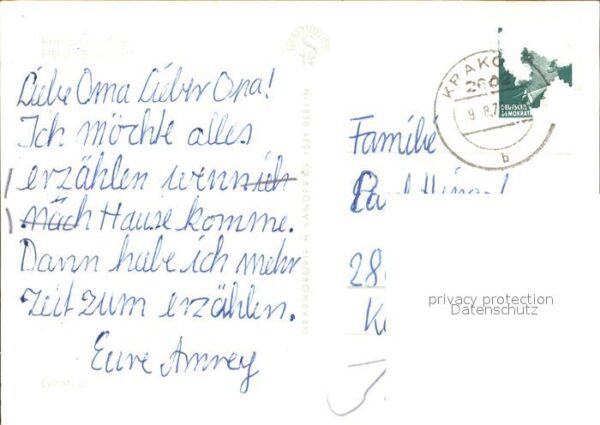 Liebe Oma Lieber Opa!
Ich möchte alles
erzählen wenn ich
nach Hause komme.
Dann habe ich mehr
Zeit zum erzählen.
Eure Amrey
GRAPHOKOPIE H. SANDER KG, 1071 BERLIN
KRAKO
9.8.7
b
DEUTSCHE
DEMOKRAT
Familie
28
privacy protection
Datenschutz